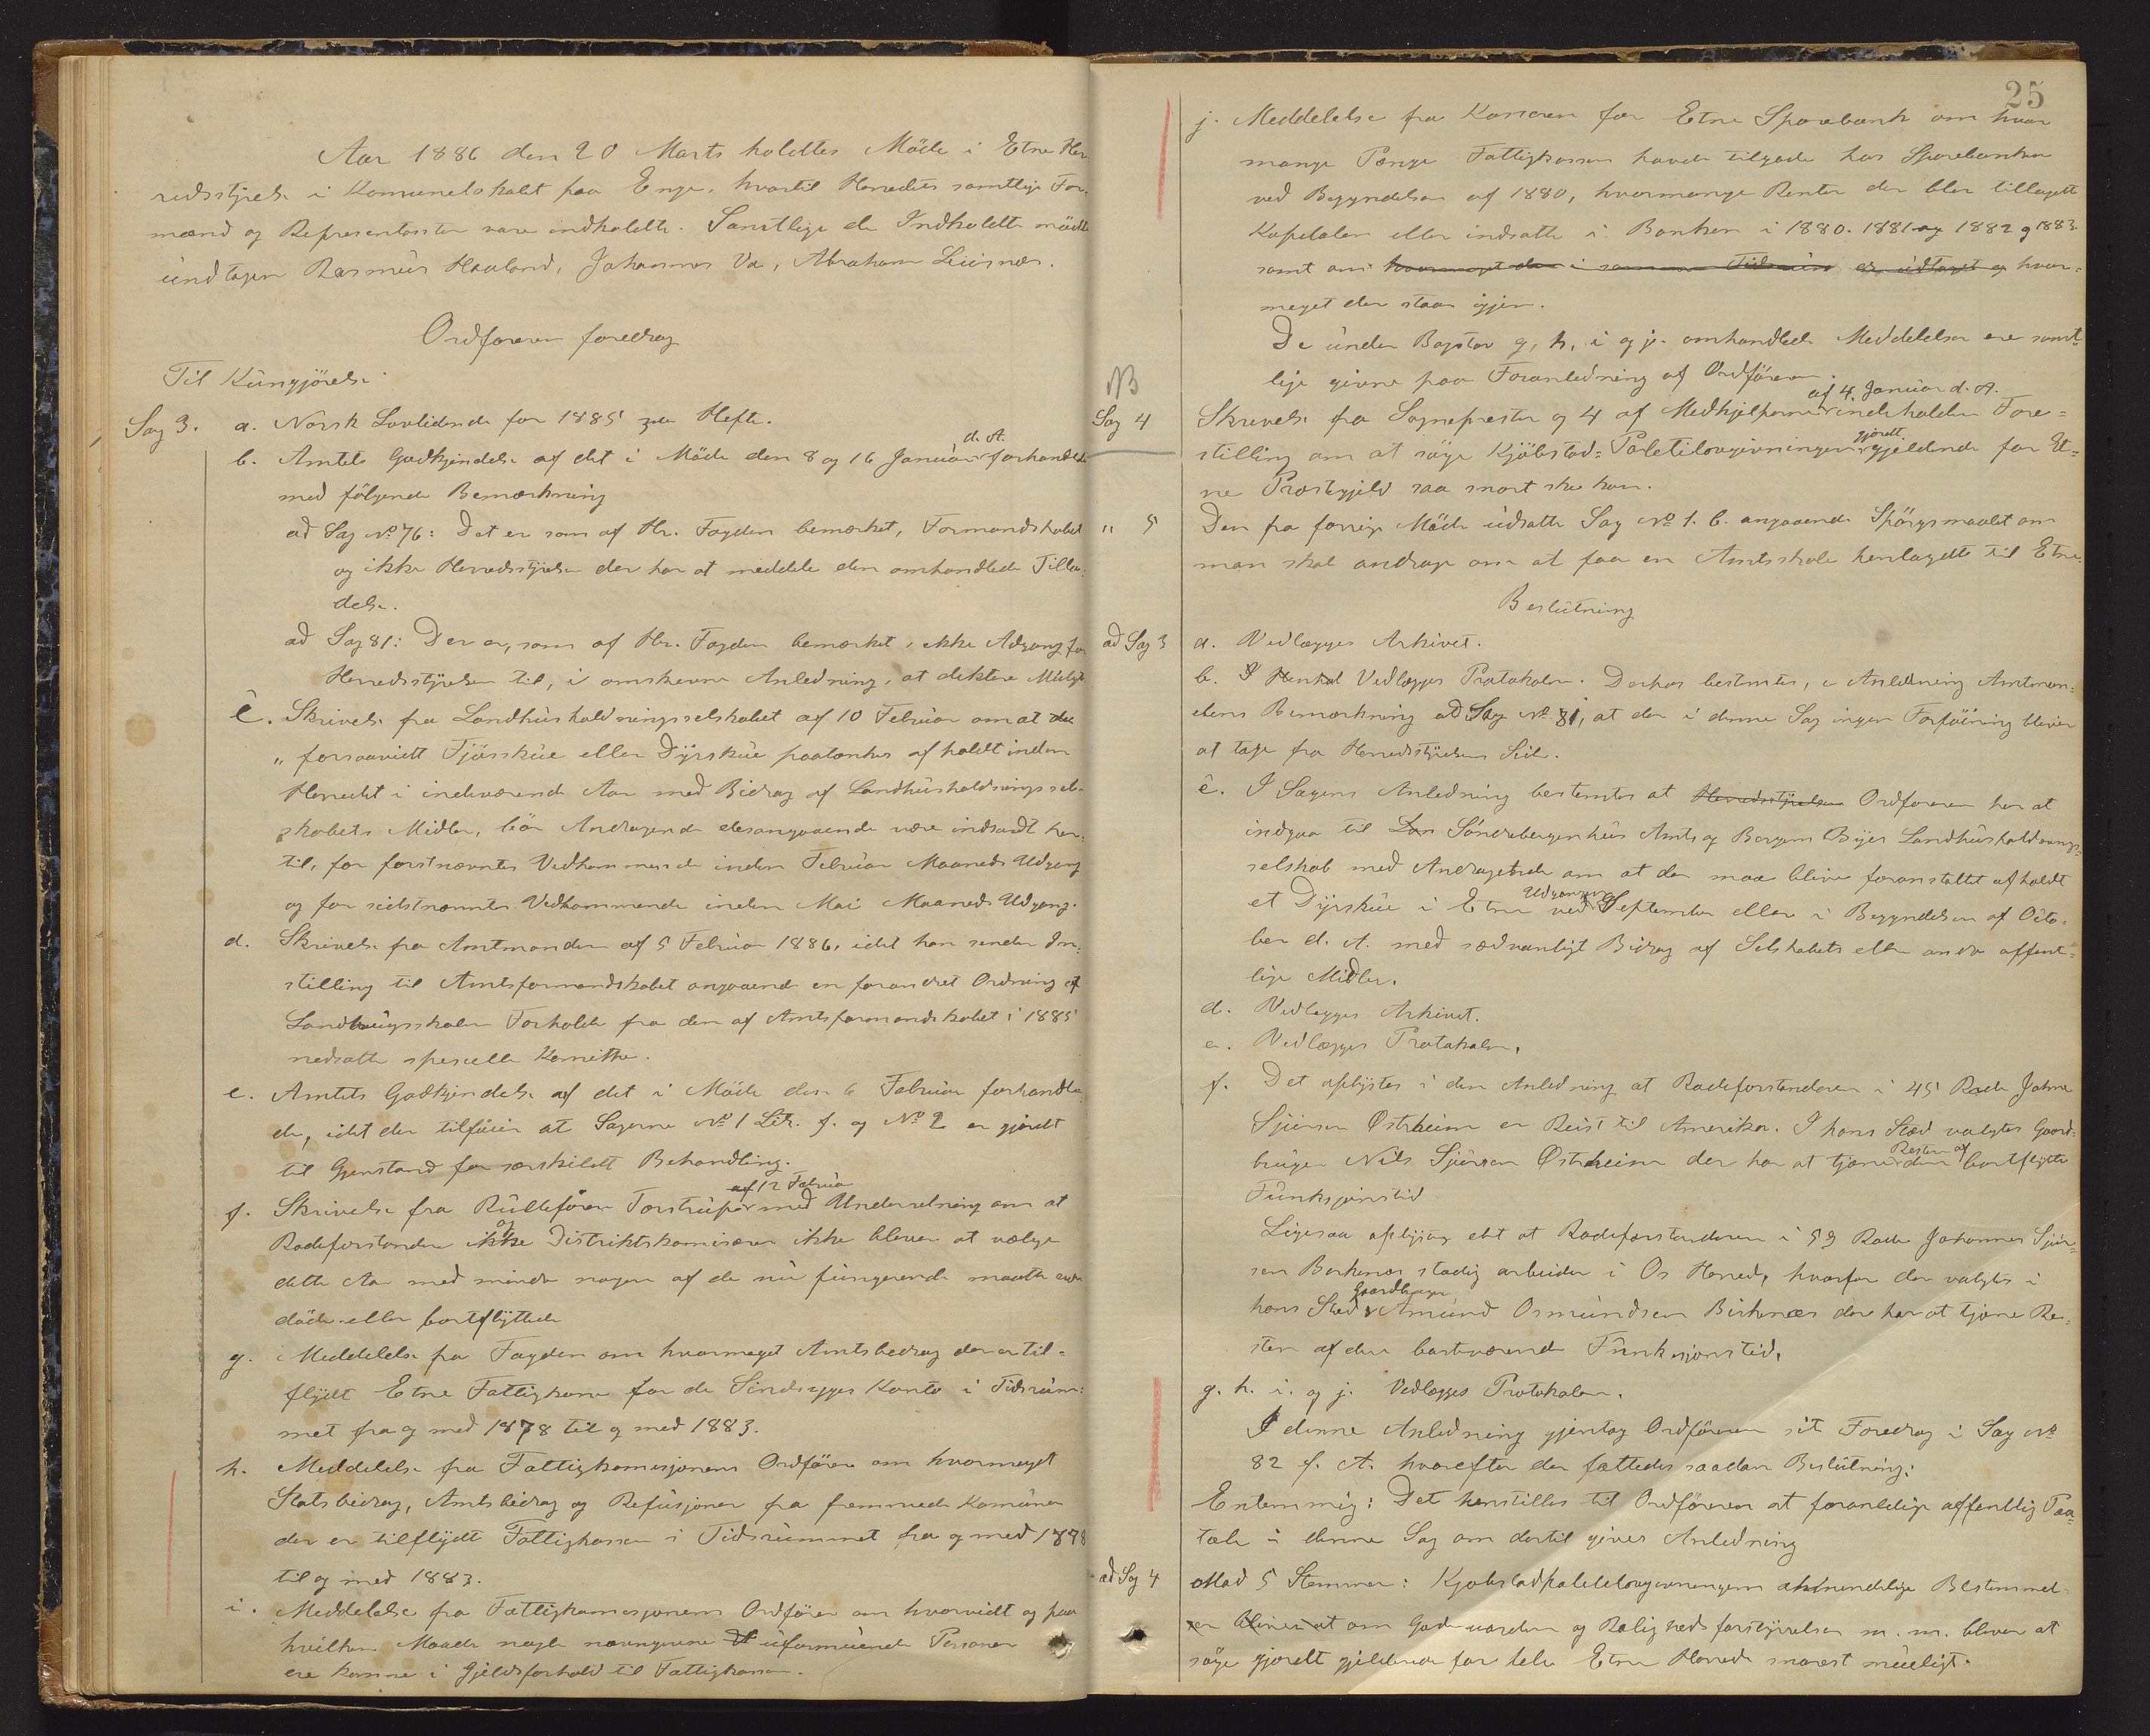 Aar 1886 den 20 Marts holdttes Möde i Etne Her
redsstyrelse i Komunelokalet paa Enge, hvortil Herredets samtlige For-
mænd og Representanter vare indkaldte. Samtlige de Indkaldte mödte
undtagen Rasmus Haaland, Johannes Va, Abraham Leiknes.
Ordföreren foredrog
Til Kungjörelse
Sag 3. a. Norsk Lovtidende for 1885 3die Hefte.
b. Amtets Godkjendelse af det i Möde den 8 og 16 Januar d. A. forhandlede
med fölgende Bemærkning
ad Sag No 76: Det er som af Hr. Fogden bemærket, Formandskabet
og ikke Herredsstyrelsen der har at meddele den omhandlede Tilla-
delse.
ad Sag 81: Der er, som af Hr. Fogden bemærket, ikke Adgang for
Herredsstyrelsen til, i omskrevne Anledning, at diktere Mulgt
c. Skrivelse fra Landhusholdningsselskabet af 10 Februar om at der
"forsaavidt Fjösskue eller Dyrskue paatænkes afholdt inden
Herredet i indeværende Aar med Bidrag af Landhusholdningssel-
skabets Midler, bör Andragende desangaaende være indsendt her-
til, for førstnævntes Vedkommende inden Februar Maaneds Udgang
og for sidstnævntes Vedkommende inden Mai Maaneds Udgang.
d. Skrivelse fra Amtmanden af 5 Februar 1886, idet han sender In-
stilling til Amtsformandskabet angaaende en forandret Ordning af
Landbrugsskolens Forholde fra den af Amtsformandskabet i 1885
nedsatte specielle Komitte.
e. Amtets Godkjendelse af det i Möde den 6 Februar forhandle-
de, idet der tilföies at Sagerne No 1 Litr. f. og No 2 er gjordt
til Gjenstand for særskildt Behandling.
f. Skrivelse fra Rulleförer Torstrup af 12 Februar med Underretning om at
Rodeforstandere ikke og Distriktskomisærer ikke bliver at vælge
dette Aar med mindre nogen af de nu fungerende maatte være
döde eller bortflyttede
g. Meddelelse fra Fogden om hvormeget Amtsbidrag der er til-
flydt Etne Fattigkasse for de Sindsygges Konto i Tidsrum-
met fra og med 1878 til og med 1883.
h. Meddelelse fra Fattigkomisjonens Ordförer om hvormeget
Statsbidrag, Amtsbidrag og Refusjoner fra fremmede Komuner
der er tilflydt Fattigkassen i Tidsrummet fra og med 1878
til og med 1883.
i. Meddelelse fra Fattigkomisjonens Ordförer om hvorvidt og paa
hvilken Maade nogle navngivne uformuende Personer
ere komne i Gjeldsforhold til Fattigkassen.
25
j. Meddelelse fra Kasseren for Etne Sparebank om hvor
mange Penge Fattigkassen havde tilgode hos Sparebanken
ved Begyndelsen af 1880, hvormange Renter der blev tillagte
Kapitalen eller indsatte i Banken i 1880. 1881 og 1882 og 1883
samt om hvormeget der i samme Tidsrum er udtaget og hvor-
meget der staar igjen.
De under Bogstav g, h, i og j. omhandlede Meddelelser ere samt-
lige givne paa Foranledning af Ordföreren.
NB
Sag 4 Skrivelse fra Sognepresten og 4 af Medhjelperne af 4. Januar d. A. indeholder Fore-
stilling om at söge Kjöbstad-Politilovgivningen gjordt gjeldende for Et-
ne Præstegjeld saa snart ske kan.
" 5 Den fra forrige Möde udsatte Sag No 1. b. angaaende Spörgsmaalet om
man skal andrage om at faa en Amtsskole henlagdt til Etne.
Beslutning
ad Sag 3 a. Vedlægges Arkivet.
b. Vedlægges Protokolen. Derhos bestemtes, i Anledning Amtman-
dens Bemærkning ad Sag No 81, at der i denne Sag ingen Forföining bliver
at tage fra Herredsstyrelsens Side.
c. I Sagens Anledning bestemtes at Herredsstyrelsen Ordföreren har at
indgaa til Söndrebergenhus Amts og Bergens Byes Landhusholdnings-
selskab med Andragende om at der maa blive foranstaltet afholdt
et Dyrskue i Etne ved Udgangen af September eller i Begyndelsen af Octo-
ber d. A. med sædvanligt Bidrag af Selskabets eller andre offent-
lige Midler.
d. Vedlægges Arkivet.
e. Vedlægges Protokolen.
f. Det oplystes i den Anledning at Rodeforstanderen i 45 Rode Johne
Sjursen Østrheim er Reist til Amerika. I hans Sted valgtes Gaard-
bruger Nils Sjursen Østrheim der har at tjene Resten af den bortflytte
Funksjonstid
Ligesaa oplystes det at Rodeforstanderen i 59 Rode Johannes Sjur-
sen Birkenes stadig arbeider i Os Herred, hvorfor der valgtes i
hans Sted Gaardbruger Amund Osmundsen Birkenæs der har at tjene Re-
sten af den bortværende Funksjonstid.
g. h. i. og j. Vedlægges Protokolen.
I denne Anledning gjentog Ordföreren sit Foredrag i Sag No
82 f. A. hvorefter der fattedes saadan Beslutning:
Enstemmig: Det henstilles til Ordföreren at foranledige offentlig Paa-
tale i denne Sag om dertil gives Anledning
ad Sag 4 Mod 5 Stemmer: Kjøbstadpolitilovgivningens almindelige Bestemmel-
ser om Gadeuorden og Rolighedsforstyrrelser m. m. bliver at
söge gjordt gjeldende for hele Etne Herred snarest mueligt.